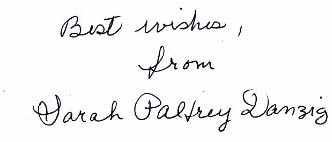 Best wishes,
from
Sarah Palfrey Danzig